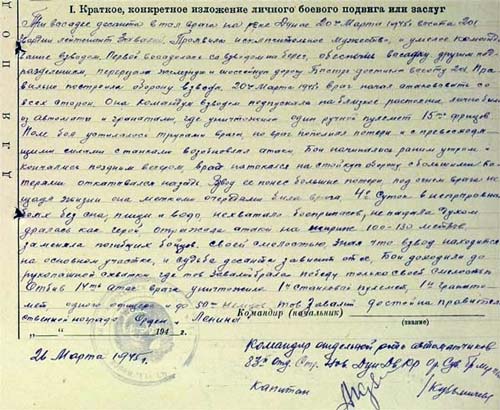 I. Краткое, конкретное изложение личного боевого подвига или заслуг
При высадке десанта в тыл врага на реке Дунае 20го Марта 1945г. высота 201
Гвардии лейтенант Завалий. Проявила исключительное мужество, и умелое командо
вание взводом. Первой высадилась со взводом на берег, обеспечив высадку другим под
разделениям, перерезала железную и шоссейную дорогу. Быстро достигла высоту 201 Пра
вильно построила оборону взвода. 20го Марта 1945г. враг начал атаковать со
всех сторон. Она командуя взводом подпускала на близкое растояние личной
из автомата и гранатами, где уничтожила один ручной пулемет 15ть фрицов
Поле боя устилалось трупами врага, но враг пополнял потери и с превосходя
щими силами стал возобновлял атаки. Бои начинались раним утром и
кончались поздним вечером, враг натокался на стойкую оборону с большими по
терями откатывался назад. Взвод ее понес большие потери, под огнем врага не
щадя жизни она меткими очередями била врага, 4е Суток в непрерывных
боях без сна, пищи и воды, нехватало боеприпасов, не падала духом
дралась как герой. Отражала атаки на ширине 100-130 метров,
заменяла погибших бойцов. своей смелостью, зная что взвод находится
на основном участке, и судьба десанта зависит от ее. Бои доходили до
рукопашной схватки где тов Завалий брала победу только своей смелостью
Отбив 14ть атак врага уничтожила 1н станковый пулемет, 1н
мет, одного офицера и до 50ти немцев тов Завалий достойна правительст
венной награды Орден Ленина
Командир (начальник)
„ “ 194 г.
(звание)
26 Марта 1945г.
Командир отдельной роты автоматчиков
83й Отд.
Капитан /Кузьмичев/
ДЛЯ ПОД